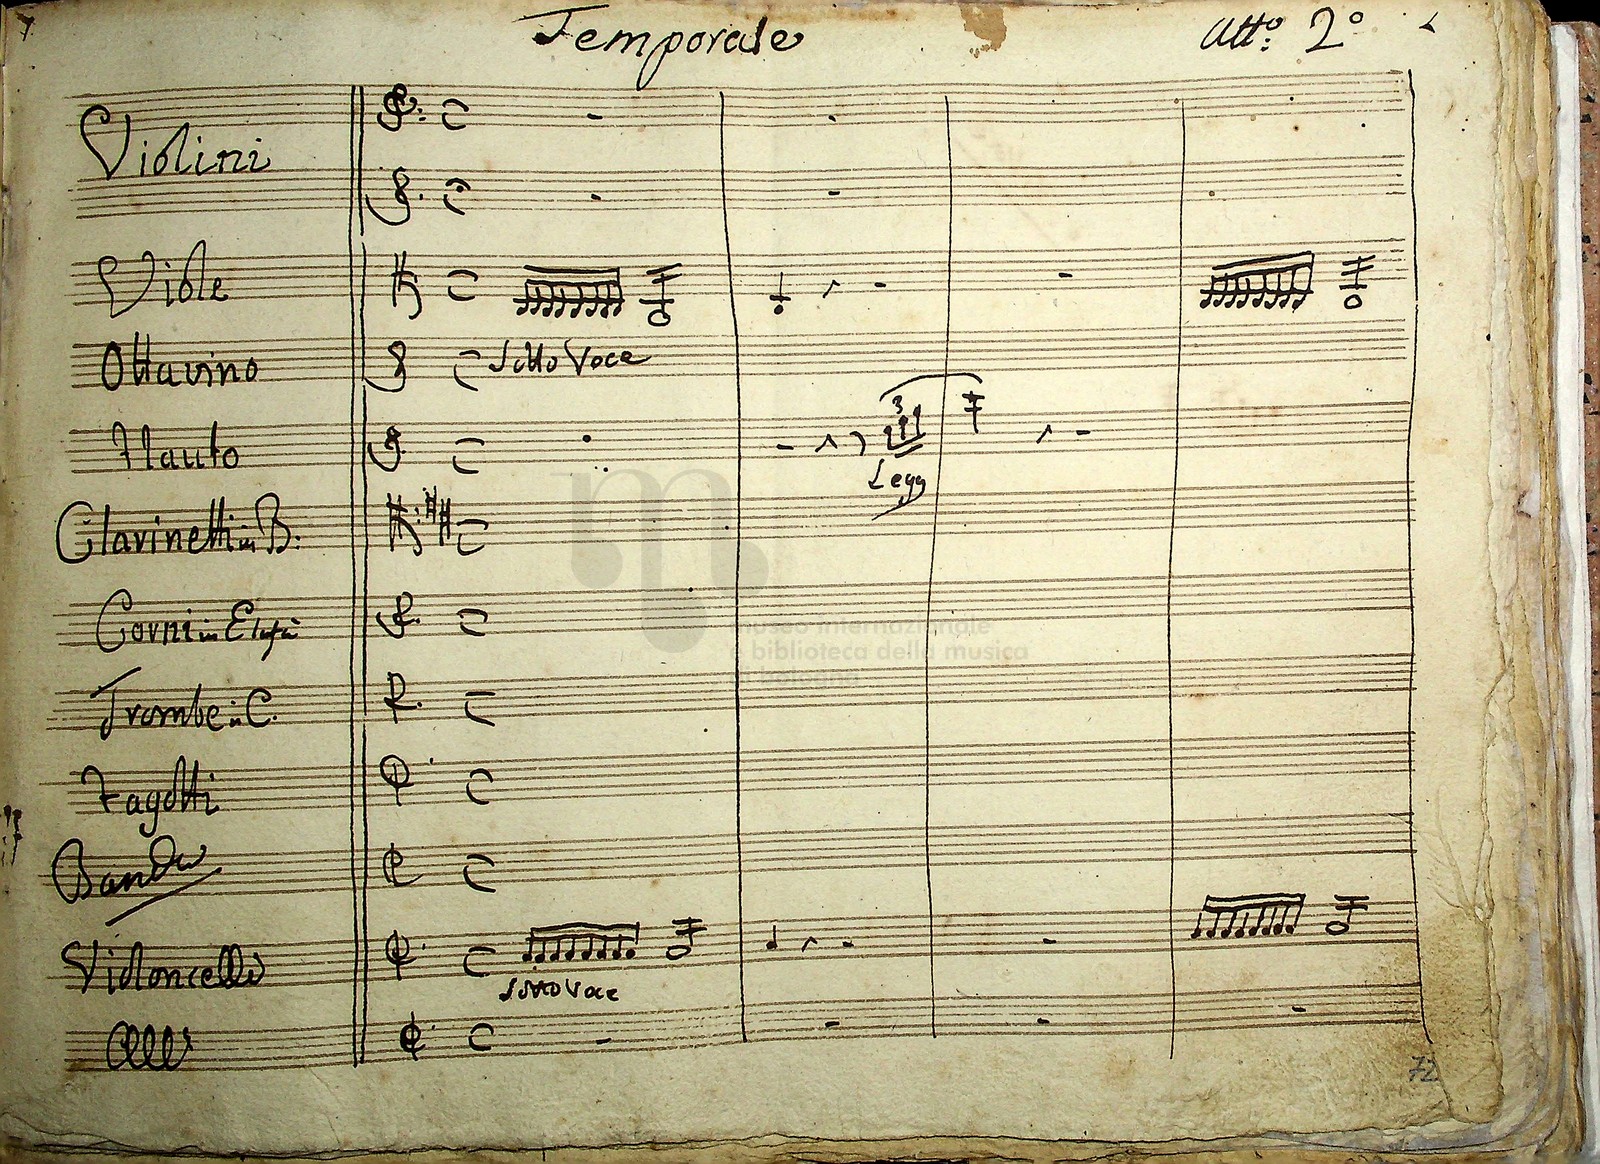 Temporale
Atto: 2º
Violini
Viole
Ottavino
Sotto Voce
Flauto
3
Legg
Clarinetti in B:
museo internazionale
e biblioteca della musica
di bologna
Corni in Elafà
Trombe in C.
Fagotti
Banda
Violoncelli
Sotto Voce
72